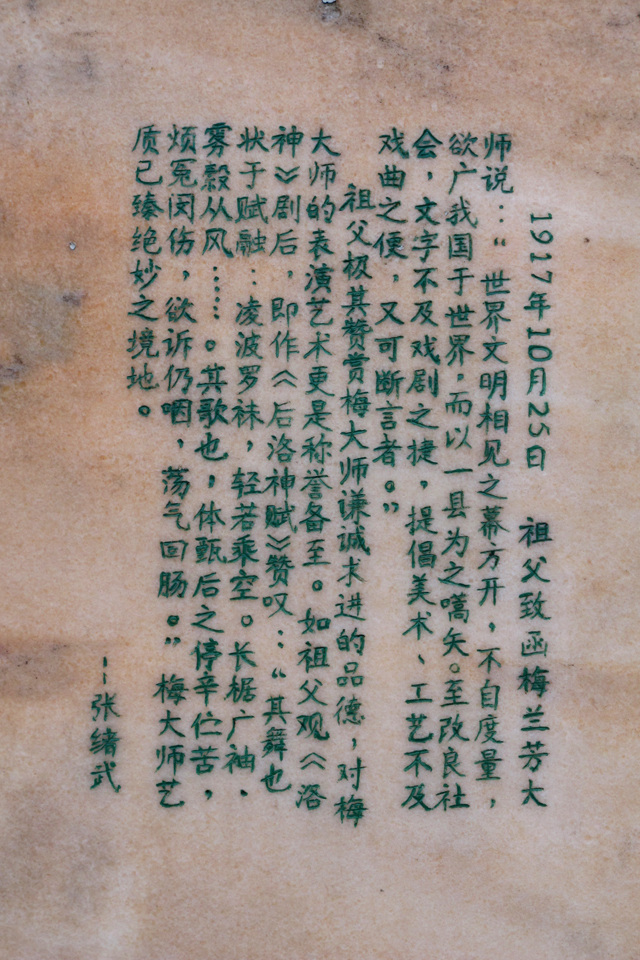 1917年10月25日 祖父致函梅兰芳大
师说：“世界文明相见之幕方开，不自度量，
欲广我国于世界。而以一县为之嚆矢。至改良社
会，文字不及戏剧之捷，提倡美术、工艺不及
戏曲之便，又可断言者。”
祖父极其赞赏梅大师谦诚求进的品德，对梅
大师的表演艺术更是称誉备至。如祖父观《洛
神》剧后，即作《后洛神赋》赞叹：“其舞也
状于赋融：凌波罗袜，轻若乘空。长裾广袖，
雾縠从风……。其歌也，体甄后之停辛伫苦，
烦冤闵伤，欲诉仍咽，荡气回肠。”梅大师艺
质已臻绝妙之境地。
--张绪武